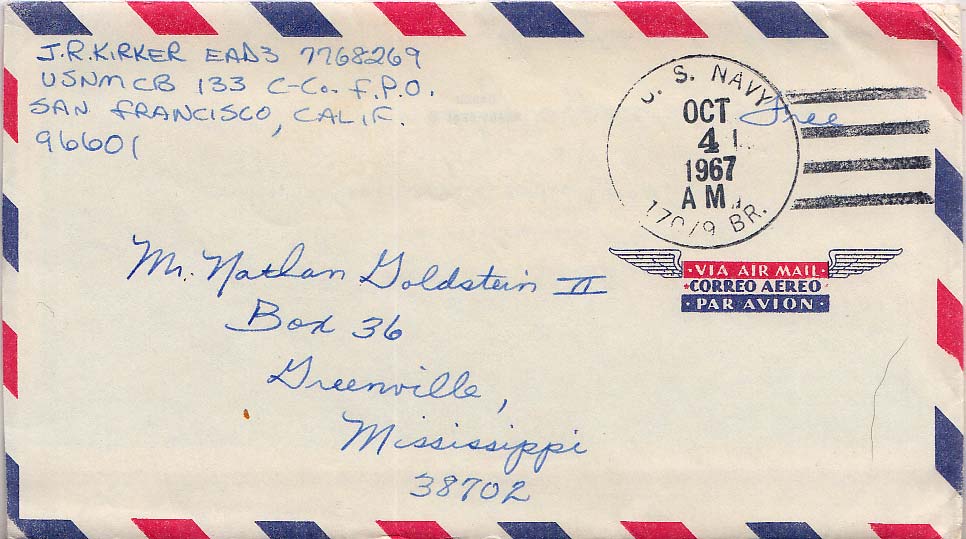 J.R.KIRKER EAD3 7768269
USNMCB 133 C-Co. F.P.O.
SAN FRANCISCO, CALIF.
96601
U. S. NAVY
OCT
4
1967
AM
BR.
Free
Mr. Nathan Goldstein II
Box 36
Greenville,
Mississippi
38702
·VIA AIR MAIL·
·CORREO AEREO·
·PAR AVION·